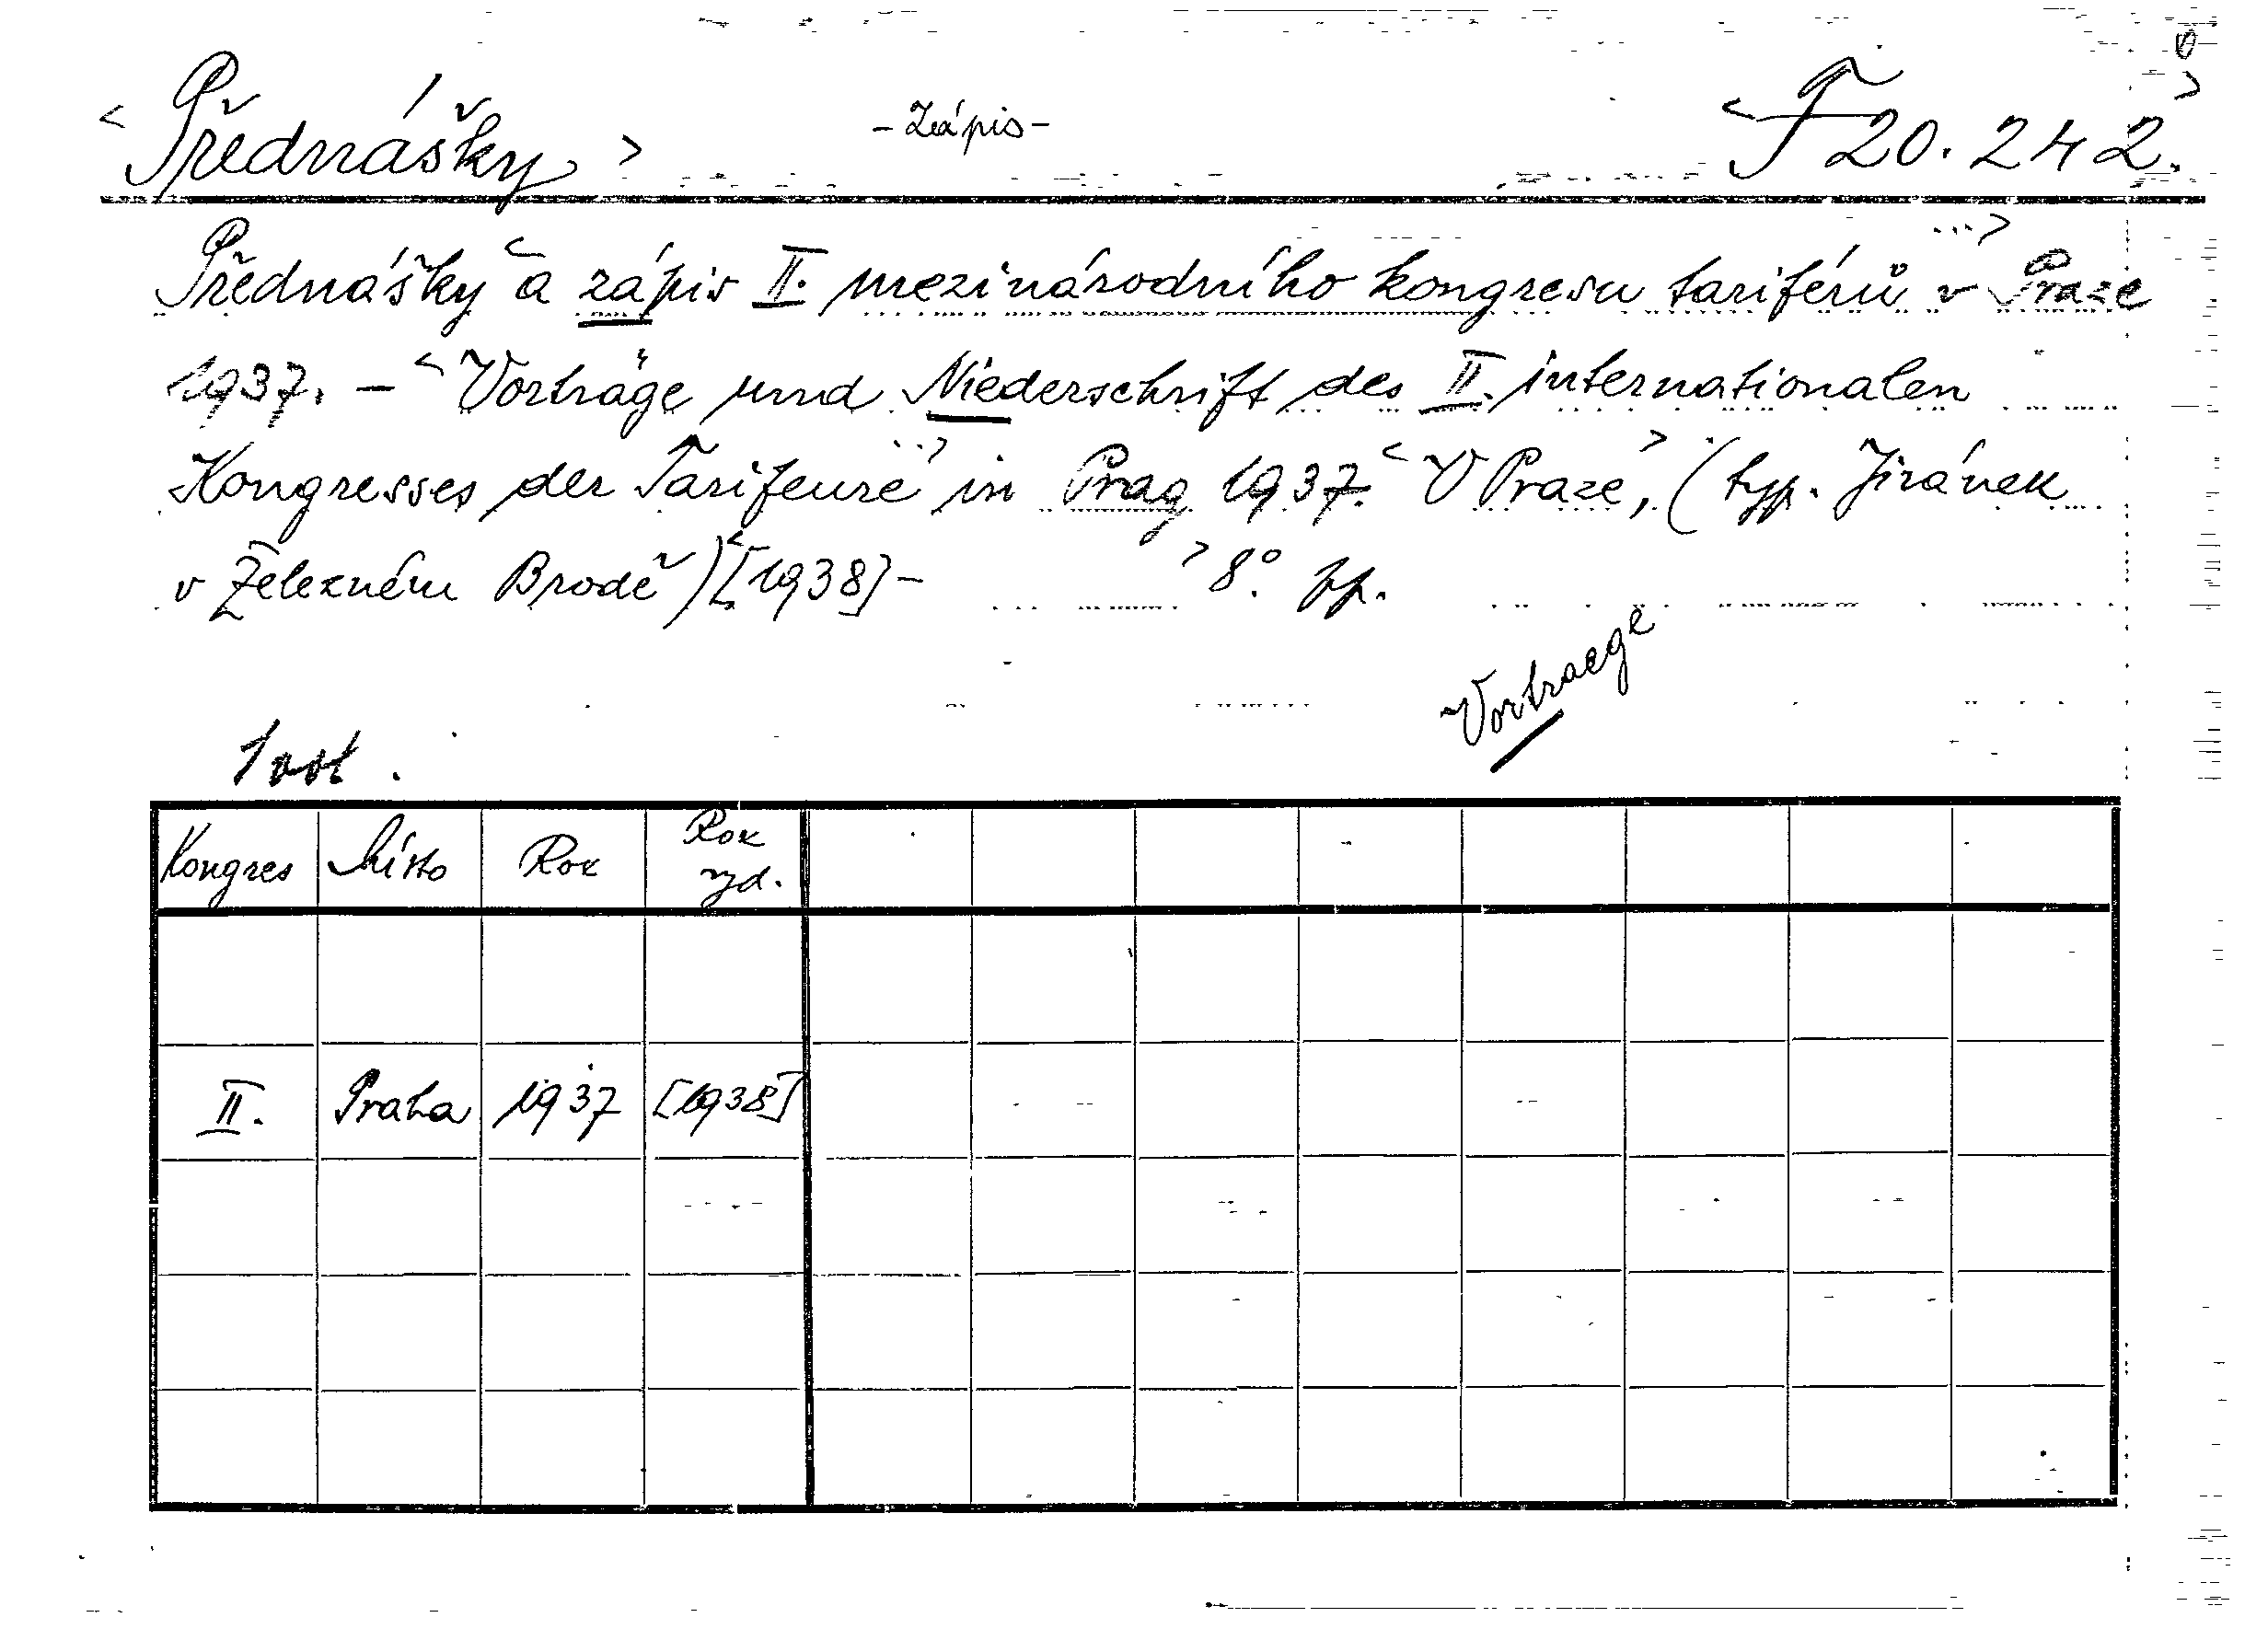 <Přednášky> -Zápis- <F 20.242.>
Přednášky <a zápis II. mezinárodního kongresu tariférů ...> v Praze
1937. - <Vorträge und Niederschrift des II. internationalen
Kongresses der Tarifeure ...> in Prag 1937. <V Praze,> (typ. Jiránek
v Železném Brodě) <[1938]- > 8°. pp.
Vortraege
1 vol.
Kongres Místo Rok Rok vyd.
II. Praha 1937 [1938]